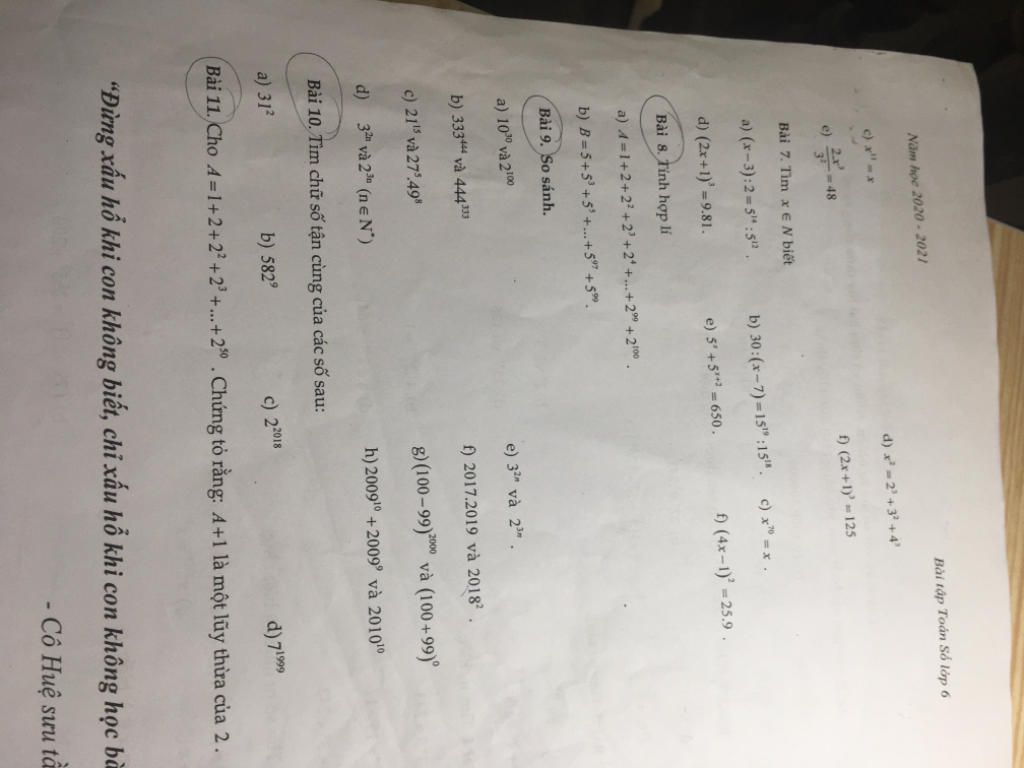 Năm học 2020 - 2021 Bài tập Toán Số lớp 6
c) x¹¹ = x d) x² = 2³ + 3² + 4³
e) 2x³/3² = 48 f) (2x+1)³ = 125
Bài 7. Tìm x ∈ N biết
a) (x−3):2 = 5¹⁴:5¹². b) 30:(x−7) = 15¹⁹:15¹⁸. c) x⁷⁰ = x.
d) (2x+1)³ = 9.81. e) 5ˣ + 5ˣ⁺² = 650. f) (4x−1)² = 25.9.
Bài 8. Tính hợp lí
a) A = 1+2+2²+2³+2⁴+...+2⁹⁹+2¹⁰⁰.
b) B = 5+5³+5⁵+...+5⁹⁷+5⁹⁹.
Bài 9. So sánh.
a) 10³⁰ và 2¹⁰⁰ e) 3²ⁿ và 2³ⁿ.
b) 333⁴⁴⁴ và 444³³³ f) 2017.2019 và 2018².
c) 21¹⁵ và 27⁵.49⁸ g) (100−99)²⁰⁰⁰ và (100+99)⁰
d) 3²ⁿ và 2³ⁿ (n ∈ N*) h) 2009¹⁰ + 2009⁹ và 2010¹⁰
Bài 10. Tìm chữ số tận cùng của các số sau:
a) 31² b) 582⁹ c) 2²⁰¹⁸ d) 7¹⁹⁹⁹
Bài 11. Cho A = 1+2+2²+2³+...+2⁵⁰. Chứng tỏ rằng: A+1 là một lũy thừa của 2.
"Đừng xấu hổ khi con không biết, chỉ xấu hổ khi con không học
- Cô Huệ sưu